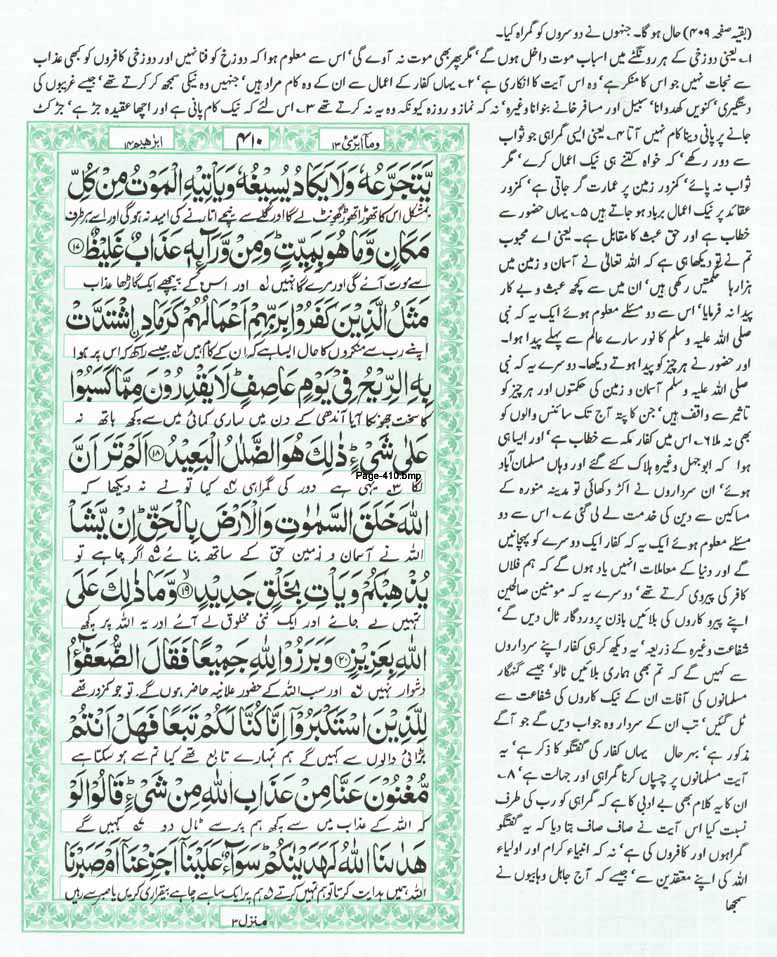 (بقیہ صفحہ ۴۰۹) حال ہو گا۔ جنہوں نے دو سروں کو گمراہ کیا۔
۱۔ یعنی دوزخی کے ہر رونگٹے میں اسباب موت داخل ہوں گے' مگر پھر بھی موت نہ آوے گی' اس سے معلوم ہوا کہ دوزخ کو فنا نہیں اور دوزخی کافروں کو کبھی عذاب
سے نجات نہیں جو اس کا منکر ہے' وہ اس آیت کا انکاری ہے' ۲۔ یہاں کفار کے اعمال سے ان کے وہ کام مراد ہیں' جنہیں وہ نیکی سمجھ کر کرتے تھے' جیسے غریبوں کی
دستگیری' کنویں کھدوانا' سبیل اور مسافر خانے بنوانا وغیرہ' نہ کہ نماز و روزہ کیونکہ وہ یہ نہ کرتے تھے ۳۔ اس لئے کہ نیک کام پانی ہے اور اچھا عقیدہ جڑ ہے' جڑ کٹ
جانے پر پانی دینا کام نہیں آتا ۴۔ یعنی ایسی گمراہی جو ثواب
سے دور رکھے' کہ خواہ کتنے ہی نیک اعمال کرے' مگر
ثواب نہ پائے' کمزور زمین پر عمارت گر جاتی ہے' کمزور
عقائد پر نیک اعمال برباد ہو جاتے ہیں ۵۔ یہاں حضور سے
خطاب ہے اور حق عبث کا مقابل ہے۔ یعنی اے محبوب
تم نے تو دیکھا ہی ہے کہ اللہ تعالیٰ نے آسمان و زمین میں
ہزارہا حکمتیں رکھی ہیں' ان میں سے کچھ عبث و بے کار
پیدا نہ فرمایا' اس سے دو مسئلے معلوم ہوئے ایک یہ کہ نبی
صلی اللہ علیہ و سلم کا نور سارے عالم سے پہلے پیدا ہوا۔
اور حضور نے ہر چیز کو پیدا ہوتے دیکھا۔ دوسرے یہ کہ نبی
صلی اللہ علیہ وسلم آسمان و زمین کی حکمتوں اور ہر چیز کو
تاثیر سے واقف ہیں' جن کا پتہ آج تک سائنس والوں کو
بھی نہ ملا ۶۔ اس میں کفار مکہ سے خطاب ہے' اور ایسا ہی
ہوا کہ ابوجہل وغیرہ ہلاک کئے گئے اور وہاں مسلمان آباد
ہوئے' ان سرداروں نے اکڑ دکھائی تو مدینہ منورہ کے
مساکین سے دین کی خدمت لے لی گئی ۷۔ اس سے دو
مسئلے معلوم ہوئے ایک یہ کہ کفار ایک دوسرے کو پہچانیں
گے اور دنیا کے معاملات انہیں یاد ہوں گے کہ ہم فلاں
کافر کی پیروی کرتے تھے' دوسرے یہ کہ مومنین صالحین
اپنے پیرو کاروں کی بلائیں باذن پروردگار ٹال دیں گے'
شفاعت وغیرہ کے ذریعہ' یہ دیکھ کر ہی کفار اپنے سرداروں
سے کہیں گے کہ تم بھی ہماری بلائیں ٹالو' جیسے گنہگار
مسلمانوں کی آفات ان کے نیک کاروں کی شفاعت سے
ٹل گئیں' تب ان کے سردار وہ جواب دیں گے جو آگے
مذکور ہے' بہر حال یہاں کفار کی گفتگو کا ذکر ہے' یہ
آیت مسلمانوں پر چسپاں کرنا گمراہی اور جہالت ہے' ۸۔
ان کا یہ کلام بھی بے ادبی کا ہے کہ گمراہی کو رب کی طرف
نسبت کیا اس آیت نے صاف صاف بتا دیا کہ یہ گفتگو
گمراہوں اور کافروں کی ہے' نہ کہ انبیاء کرام اور اولیاء
اللہ کی اپنے معتقدین سے' جیسے کہ آج جاہل وہابیوں نے
سمجھا
وما ابرئ ۱۳ ۴۱۰ ابراھیم ۱۴
يَّتَجَرَّعُهٗ وَلَا يَكَادُ يُسِيْغُهٗ وَيَاْتِيْهِ الْمَوْتُ مِنْ كُلِّ
بمشکل اس کا تھوڑا تھوڑا گھونٹ لے گا اور گلے سے نیچے اتارنے کی امید نہ ہوگی اور اسے ہر طرف
مَكَانٍ وَّمَا هُوَ بِمَيِّتٍ ؕ وَمِنْ وَّرَآىِٕهٖ عَذَابٌ غَلِيْظٌ ﴿۱۷﴾
سے موت آئے گی اور مرے گا نہیں ۱ اور اس کے پیچھے ایک گاڑھا عذاب
مَثَلُ الَّذِيْنَ كَفَرُوْا بِرَبِّهِمْ اَعْمَالُهُمْ كَرَمَادِ ِۨ اشْتَدَّتْ
اپنے رب سے منکروں کا حال ایسا ہے کہ ان کے کام ہیں ۲ جیسے راکھ کہ اس پر ہوا
بِهِ الرِّيْحُ فِيْ يَوْمٍ عَاصِفٍ ؕ لَا يَقْدِرُوْنَ مِمَّا كَسَبُوْا
کا سخت جھونکا آیا آندھی کے دن میں ساری کمائی میں سے کچھ ہاتھ نہ
عَلٰى شَيْءٍ ؕ ذٰلِكَ هُوَ الضَّلٰلُ الْبَعِيْدُ ﴿۱۸﴾ اَلَمْ تَرَ اَنَّ
Page-410.bmp
لگا ۳ یہی ہے دور کی گمراہی ۴ کیا تو نے نہ دیکھا کہ
اللّٰهَ خَلَقَ السَّمٰوٰتِ وَالْاَرْضَ بِالْحَقِّ ؕ اِنْ يَّشَاْ
اللہ نے آسمان و زمین حق کے ساتھ بنائے ۵ اگر چاہے تو
يُذْهِبْكُمْ وَيَاْتِ بِخَلْقٍ جَدِيْدٍ ﴿۱۹﴾ وَّمَا ذٰلِكَ عَلَى
تمہیں لے جائے اور ایک نئی مخلوق لے آئے اور یہ اللہ پر کچھ
اللّٰهِ بِعَزِيْزٍ ﴿۲۰﴾ وَبَرَزُوْا لِلّٰهِ جَمِيْعًا فَقَالَ الضُّعَفٰٓؤُا
دشوار نہیں ۶ اور سب اللہ کے حضور علانیہ حاضر ہوں گے، تو جو کمزور تھے
لِلَّذِيْنَ اسْتَكْبَرُوْۤا اِنَّا كُنَّا لَكُمْ تَبَعًا فَهَلْ اَنْتُمْ
بڑائی والوں سے کہیں گے ہم تمہارے تابع تھے کیا تم سے ہو سکتا ہے
مُّغْنُوْنَ عَنَّا مِنْ عَذَابِ اللّٰهِ مِنْ شَيْءٍ ؕ قَالُوْا لَوْ
کہ اللہ کے عذاب میں سے کچھ ہم پر سے ٹال دو ۷ کہیں گے
هَدٰىنَا اللّٰهُ لَهَدَيْنٰكُمْ ؕ سَوَآءٌ عَلَيْنَاۤ اَجَزِعْنَاۤ اَمْ صَبَرْنَا
اللہ ہمیں ہدایت کرتا تو ہم تمہیں کرتے ۸ ہم پر ایک سا ہے چاہے بیقراری کریں یا صبر سے رہیں
منزل ۳